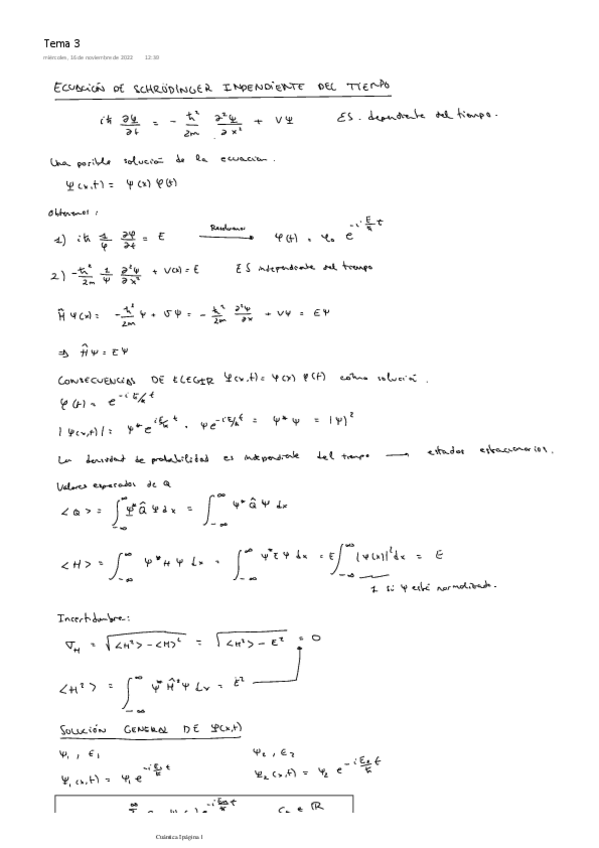 Tema 3
miércoles, 16 de noviembre de 2022 12:30
ECUACIÓN DE SCHRÖDINGER INDENDIENTE DEL TIEMPO
iħ ∂Ψ/∂t = - ħ²/2m ∂²Ψ/∂x² + VΨ ES. dependiente del tiempo.
Una posible solución de la ecuación.
Ψ(x,t) = ψ(x) φ(t)
Obtenemos:
1) iħ 1/φ ∂φ/∂t = E Resolvemos → φ(t) = φ₀ e^(-i E/ħ t)
2) -ħ²/2m 1/ψ ∂²ψ/∂x² + V(x) = E ES independiente del tiempo
Ĥ ψ(x) = -ħ²/2m ψ + Vψ = -ħ²/2m ∂²ψ/∂x + Vψ = Eψ
⇒ Ĥψ = Eψ
CONSECUENCIAS DE ELEGIR Ψ(x,t) = ψ(x) φ(t) como solución.
φ(t) = e^(-i E/ħ t)
|Ψ(x,t)| = ψ* e^(i E/ħ t) · ψ e^(-i E/ħ t) = ψ* ψ = |ψ|²
La densidad de probabilidad es independiente del tiempo → estados estacionarios.
Valores esperados de Q
<Q> = ∫_{-∞}^{∞} Ψ* Q̂ Ψ dx = ∫_{-∞}^{∞} ψ* Q̂ ψ dx
<H> = ∫_{-∞}^{∞} ψ* H ψ dx = ∫_{-∞}^{∞} ψ* E ψ dx = E ∫_{-∞}^{∞} |ψ(x)|² dx = E
1 si ψ está normalizada.
Incertidumbre:
σ_H = √(<H²> - <H>²) = √(<H²> - E²) = 0
<H²> = ∫_{-∞}^{∞} ψ* Ĥ² ψ dx = E²
SOLUCIÓN GENERAL DE Ψ(x,t)
ψ₁, E₁ ψ₂, E₂
Ψ₁(x,t) = ψ₁ e^(-i E₁/ħ t) Ψ₂(x,t) = ψ₂ e^(-i E₂/ħ t)
Cuántica I página 1